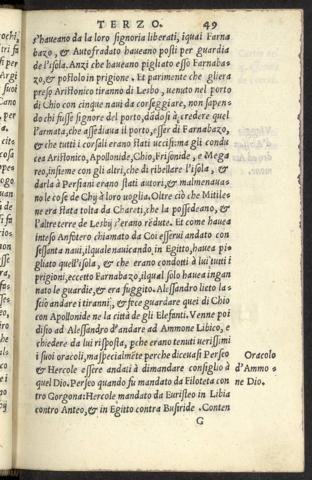 TERZO. 49
s'haueano da la loro signoria liberati, i quai Farna
bazo, & Autofradato haueano posti per guardia
de l'isola. Anzi che haueano pigliato esso Farnaba-
zo, & postolo in prigione. Et parimente che gliera
preso Aristonico tiranno di Lesbo, uenuto nel porto
di Chio con cinque naui da corseggiare, non sapen-
do chi fusse signore del porto, dãdosi à credere quel
l'armata, che assediaua il porto, esser di Farnabazo,
& che tutti i corsali erano stati uccisi ma gli condu
cea Aristonico, Apollonide, Chio, Frisonide, e Mega
reo, insieme con gli altri, che di ribellare l'isola, &
darla à Persiani erano stati autori, & malmenaua-
no le cose de Chÿ à loro uoglia. Oltre ciò che Mitile-
ne era stata tolta da Chareti, che la possedeano, &
l'altre terre de Lesbÿ s'erano rédute. Et come hauea
inteso Anfotero chiamato da Coi essersi andato con
sessanta naui, il quale nauicando, in Egitto, hauea pi-
gliato quell'isola, & che erano condotti à lui tutti i
prigioni, eccetto Farnabazo, il qual solo hauea ingan
nato le guardie, & era fuggito. Alessandro lieto la-
sciò andare i tiranni, & fece guardare quei di Chio
con Apollonide ne la città de gli Elefanti. Venne poi
disio ad Alessandro d'andare ad Ammone Libico, e
chiedere da lui risposta, pche erano tenuti uerissimi
i suoi oracoli, ma specialmẽte perche diceuasi Perseo
& Hercole essere andati à dimandare consiglio à
quel Dio. Perseo quando fu mandato da Filoteta con
tro Gorgona: Hercole mandato da Euristeo in Libia
contro Anteo, & in Egitto contra Busiride. Conten
G
Oracolo
d'Ammo
ne Dio.